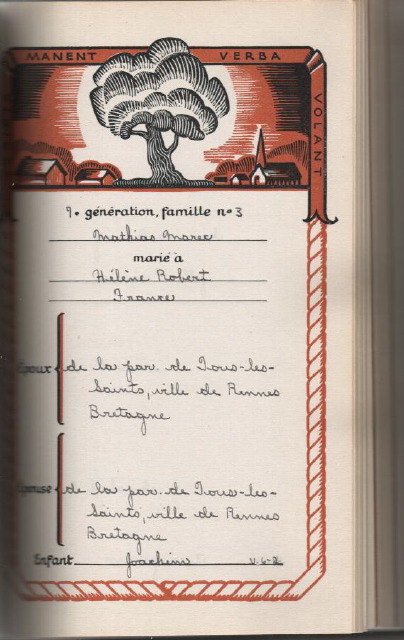 MANENT VERBA
VOLANT
9e génération, famille no 3
Mathias Marec
marié à
Hélène Robert
France
Époux de la par. de Tous-les-
Saints, ville de Rennes
Bretagne
Épouse de la par. de Tous-les-
Saints, ville de Rennes
Bretagne
Enfant Joachim V-6-2